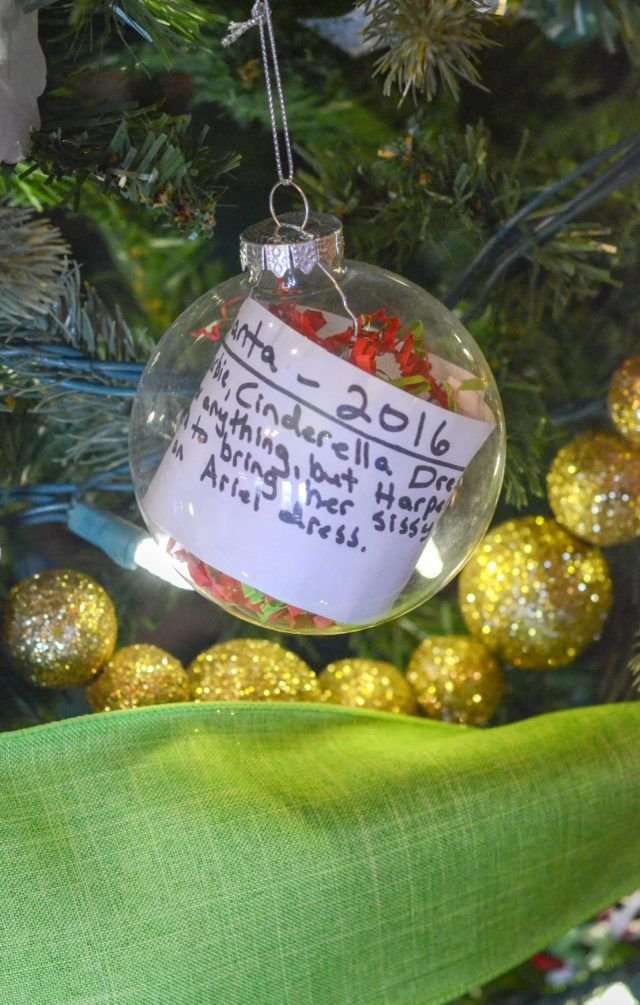 anta - 2016
bie, Cinderella Dre
anything, but Harpe
to bring her sissy
on Ariel dress.